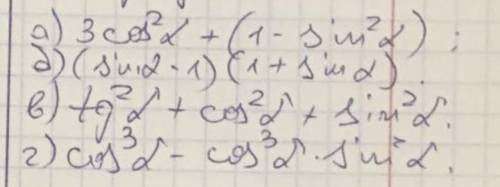 а) 3cos²α + (1 - sin²α);
б) (sinα - 1)(1 + sinα).
в) tg²α + cos²α + sin²α.
г) cos³α - cos³α · sin²α.